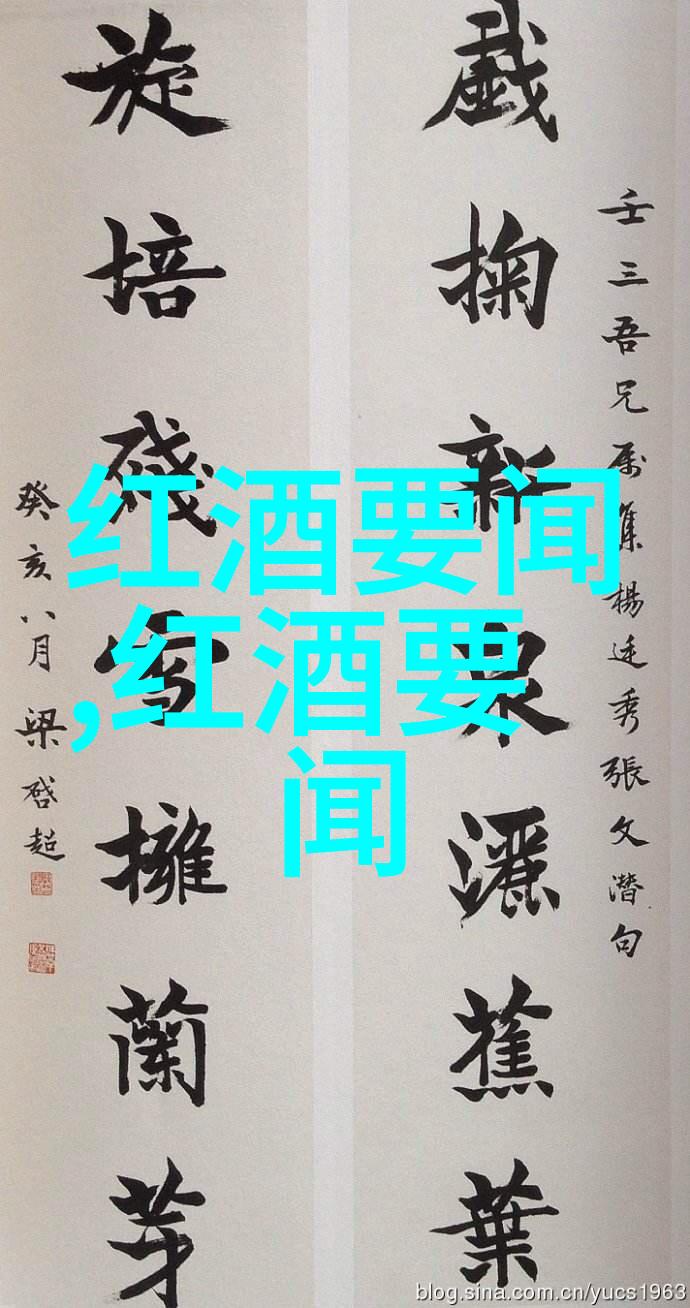 壬三吾兄属集楊廷秀張文潛句
戲掬新泉灑蕉葉
旋培殘雪擁蘭芽
癸亥八月梁啓超
红酒要闻
,红酒要
闻
blog.sina.com.cn/yucs1963